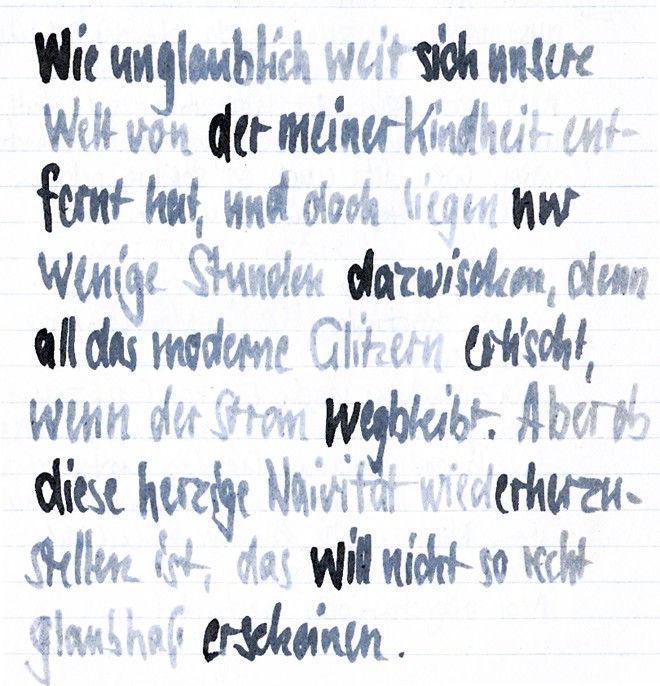 Wie unglaublich weit sich unsere
Welt von der meiner Kindheit ent-
fernt hat, und doch liegen nur
wenige Stunden dazwischen, denn
all das moderne Glitzern erlischt,
wenn der Strom wegbleibt. Aber ob
diese herzige Naivität wiederherzu-
stellen ist, das will nicht so recht
glaubhaft erscheinen.